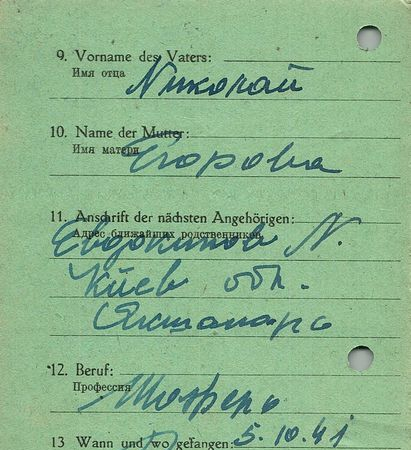 9. Vorname des Vaters:
Имя отца
Николай
10. Name der Mutter:
Имя матери
Егоровна
11. Anschrift der nächsten Angehörigen:
Адрес ближайших родственников
Евдокимов N.
Киев обл.
12. Beruf:
Профессия
Шоферъ
13 Wann und wo gefangen: 5.10.41